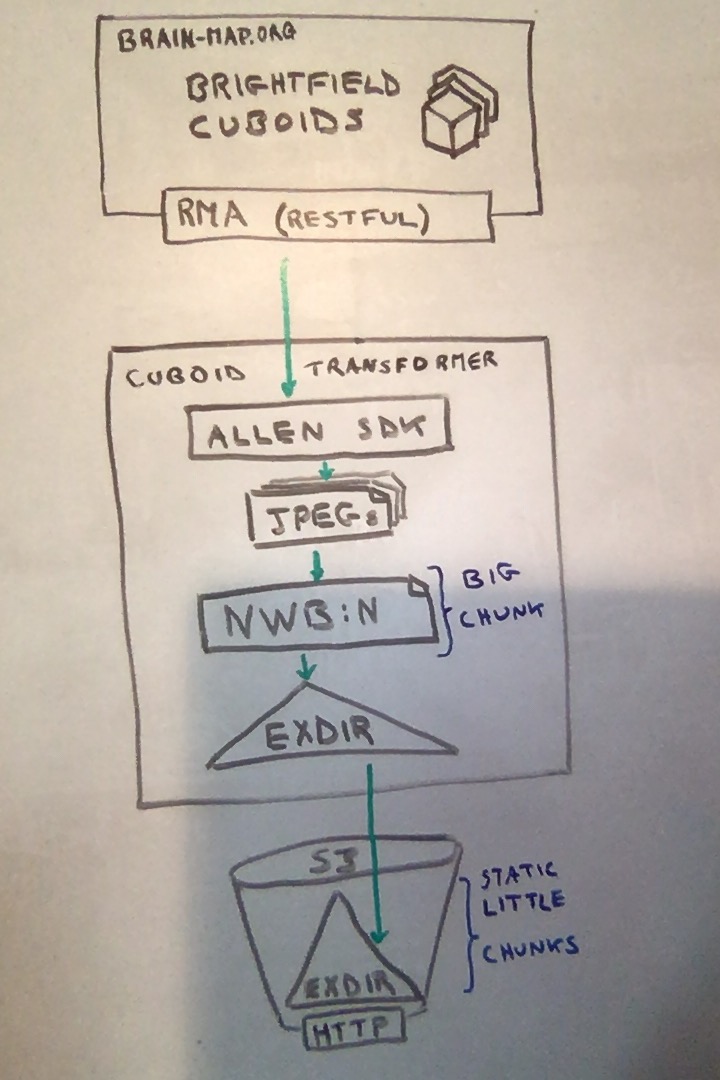 BRAIN-MAP.ORG
BRIGHTFIELD
CUBOIDS
RMA (RESTFUL)
CUBOID TRANSFORMER
ALLEN SDK
JPEGs
NWB:N
BIG
CHUNK
EXDIR
S3
STATIC
LITTLE
CHUNKS
EXDIR
HTTP